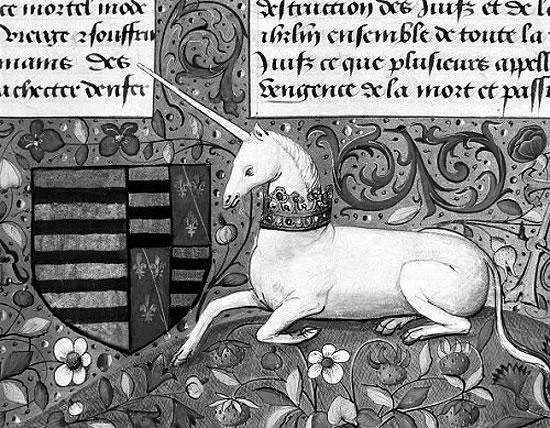 ce mortel mode
Vierge & souffrir
mains des
achecter denfer
destruction des Juifz et de la
ihrlm ensemble de toute la
Juifz ce que plusieurs appell
Vengence de la mort et passi